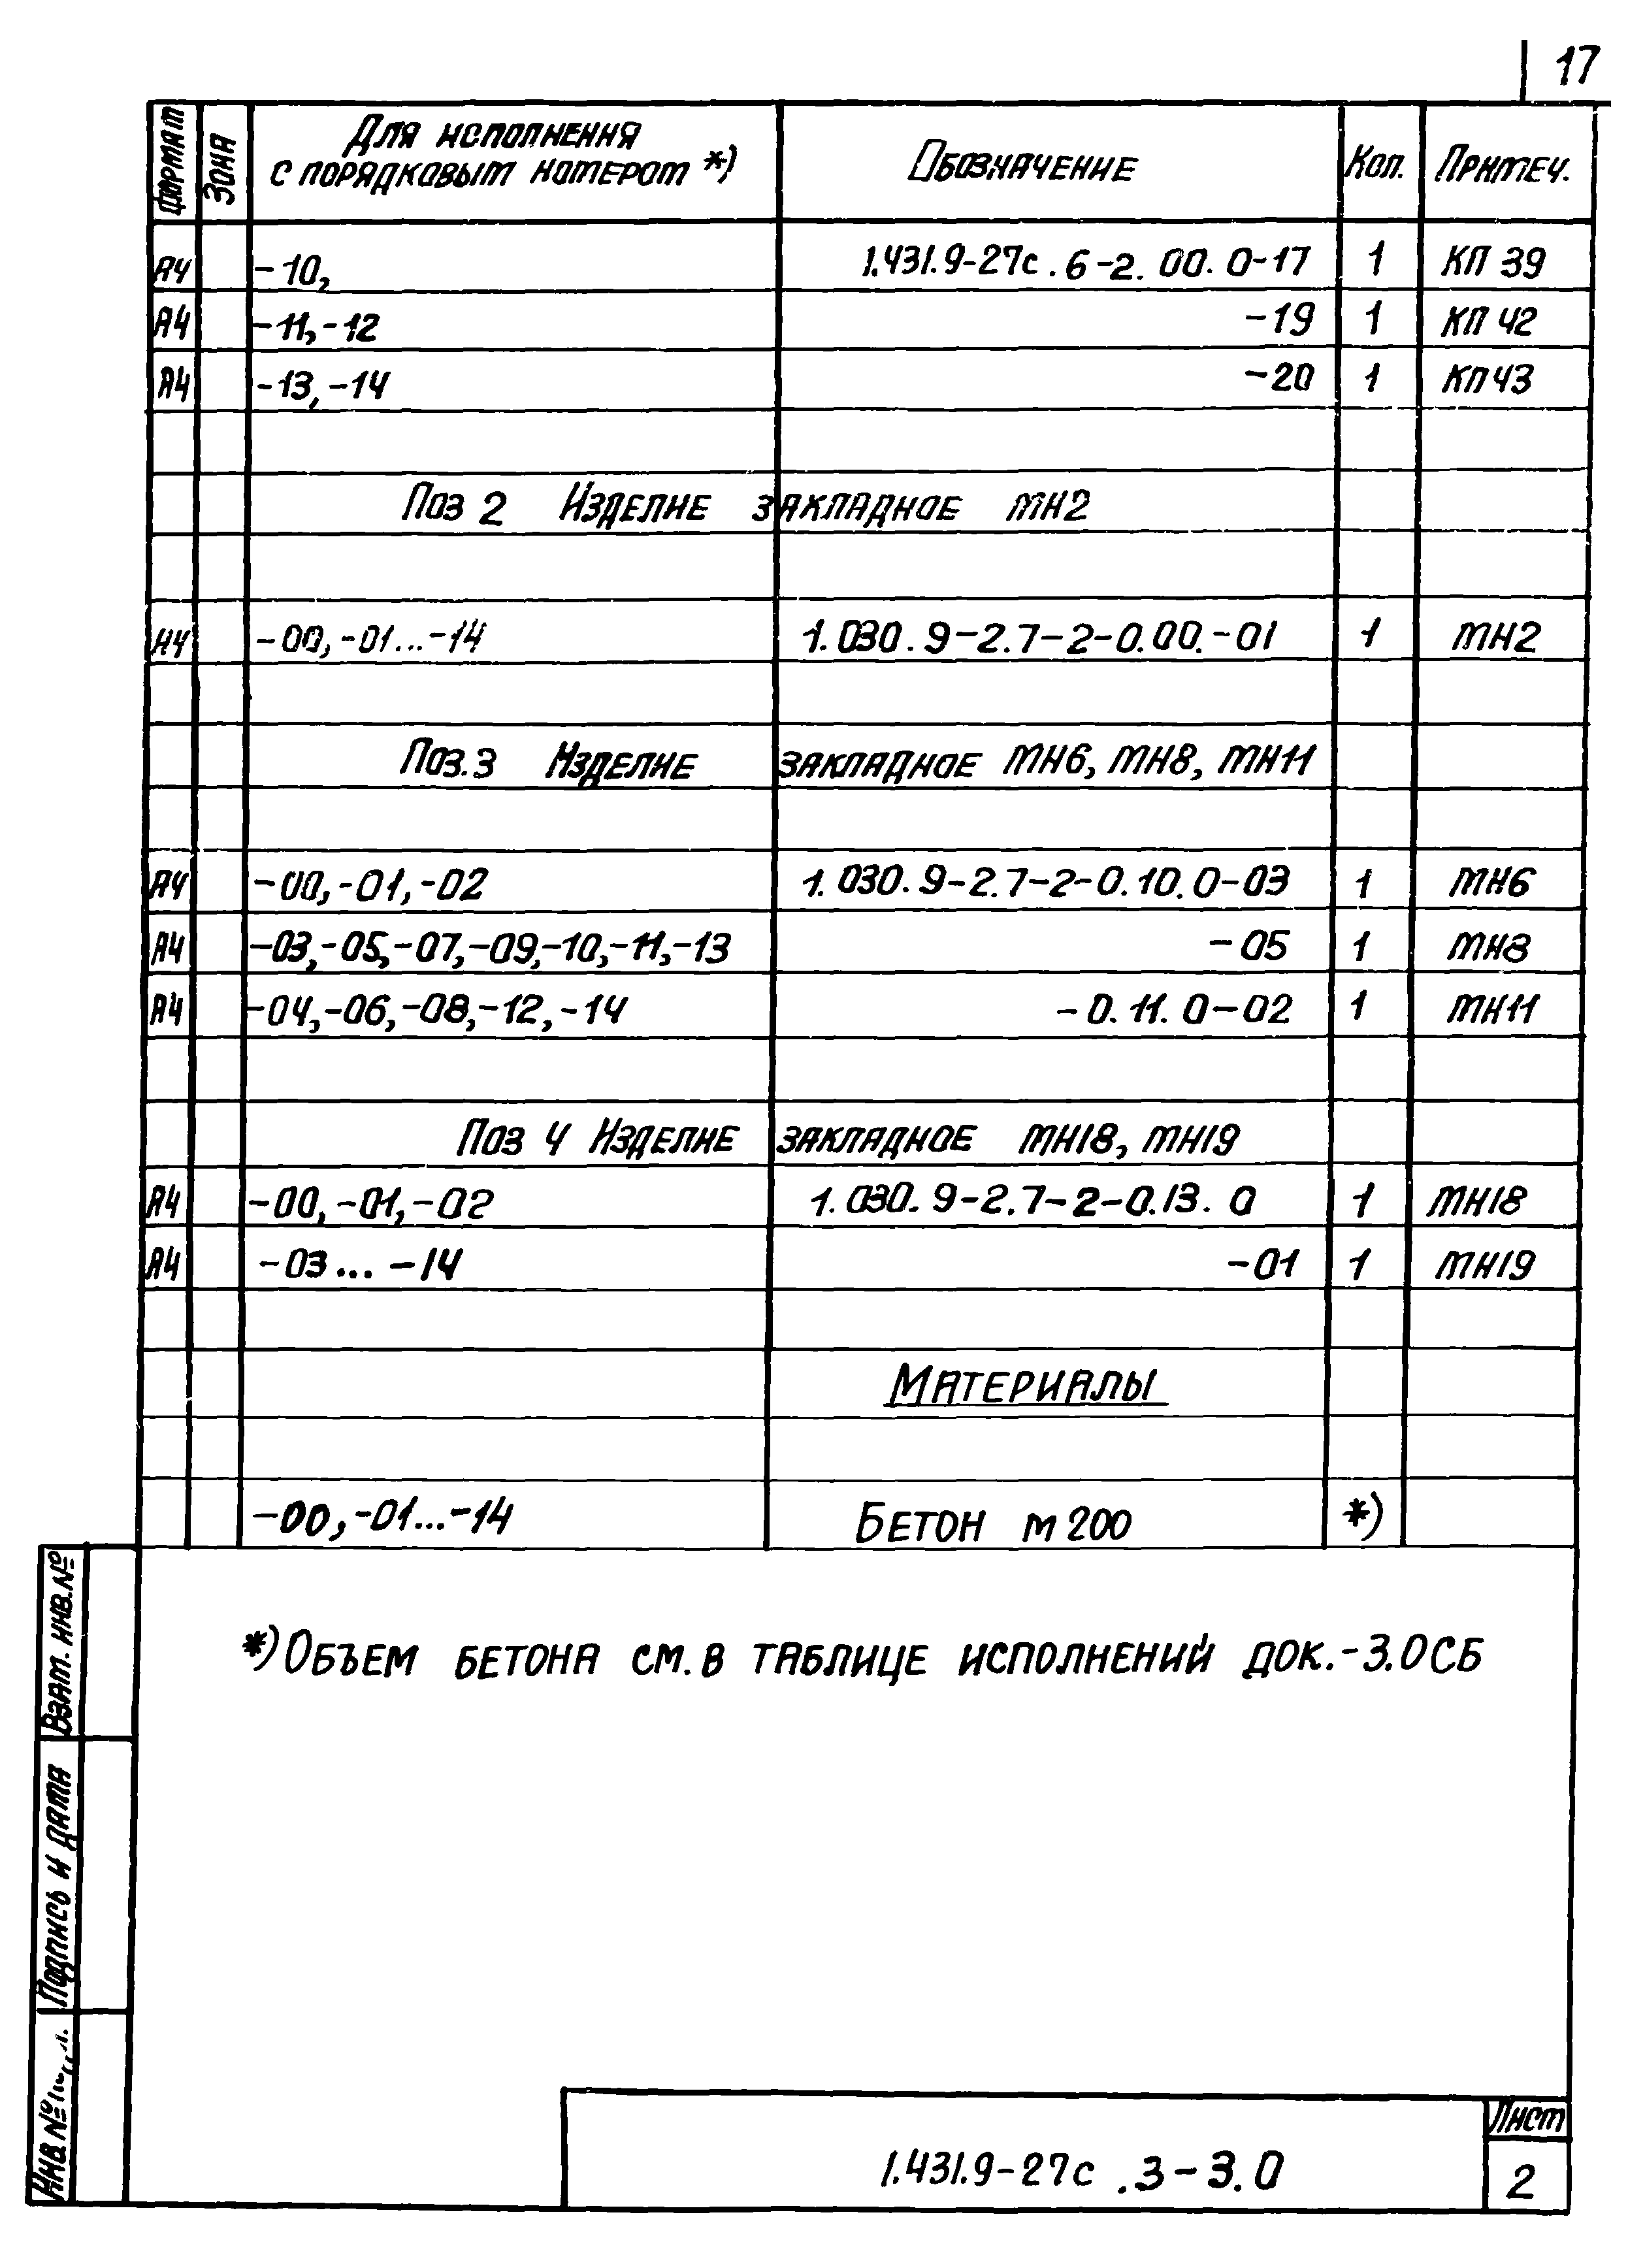 17
Формат Зона Для исполнения с порядковым номером *) Обозначение Кол. Примеч.
А4 -10, 1.431.9-27с.6-2.00.0-17 1 КП 39
А4 -11,-12 -19 1 КП 42
А4 -13,-14 -20 1 КП 43
Поз 2 Изделие закладное МН2
А4 -00,-01...-14 1.030.9-2.7-2-0.00.-01 1 МН2
Поз.3 Изделие закладное МН6, МН8, МН11
А4 -00,-01,-02 1.030.9-2.7-2-0.10.0-03 1 МН6
А4 -03,-05,-07,-09,-10,-11,-13 -05 1 МН8
А4 -04,-06,-08,-12,-14 -0.11.0-02 1 МН11
Поз 4 Изделие закладное МН18, МН19
А4 -00,-01,-02 1.030.9-2.7-2-0.13.0 1 МН18
А4 -03...-14 -01 1 МН19
Материалы
-00,-01...-14 Бетон М200 *)
*) Объем бетона см. в таблице исполнений док.-3.0СБ
Взам. инв.№
Подпись и дата
Инв №
1.431.9-27с.3-3.0
Лист
2